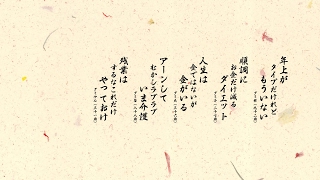 年上が
タイプだけれど
もういない
順調に
お金だけ減る
ダイエット
人生は
金ではないが
金がいる
アーンして
むかしラブラブ
いま介護
残業は
するなこれだけ
やっておけ